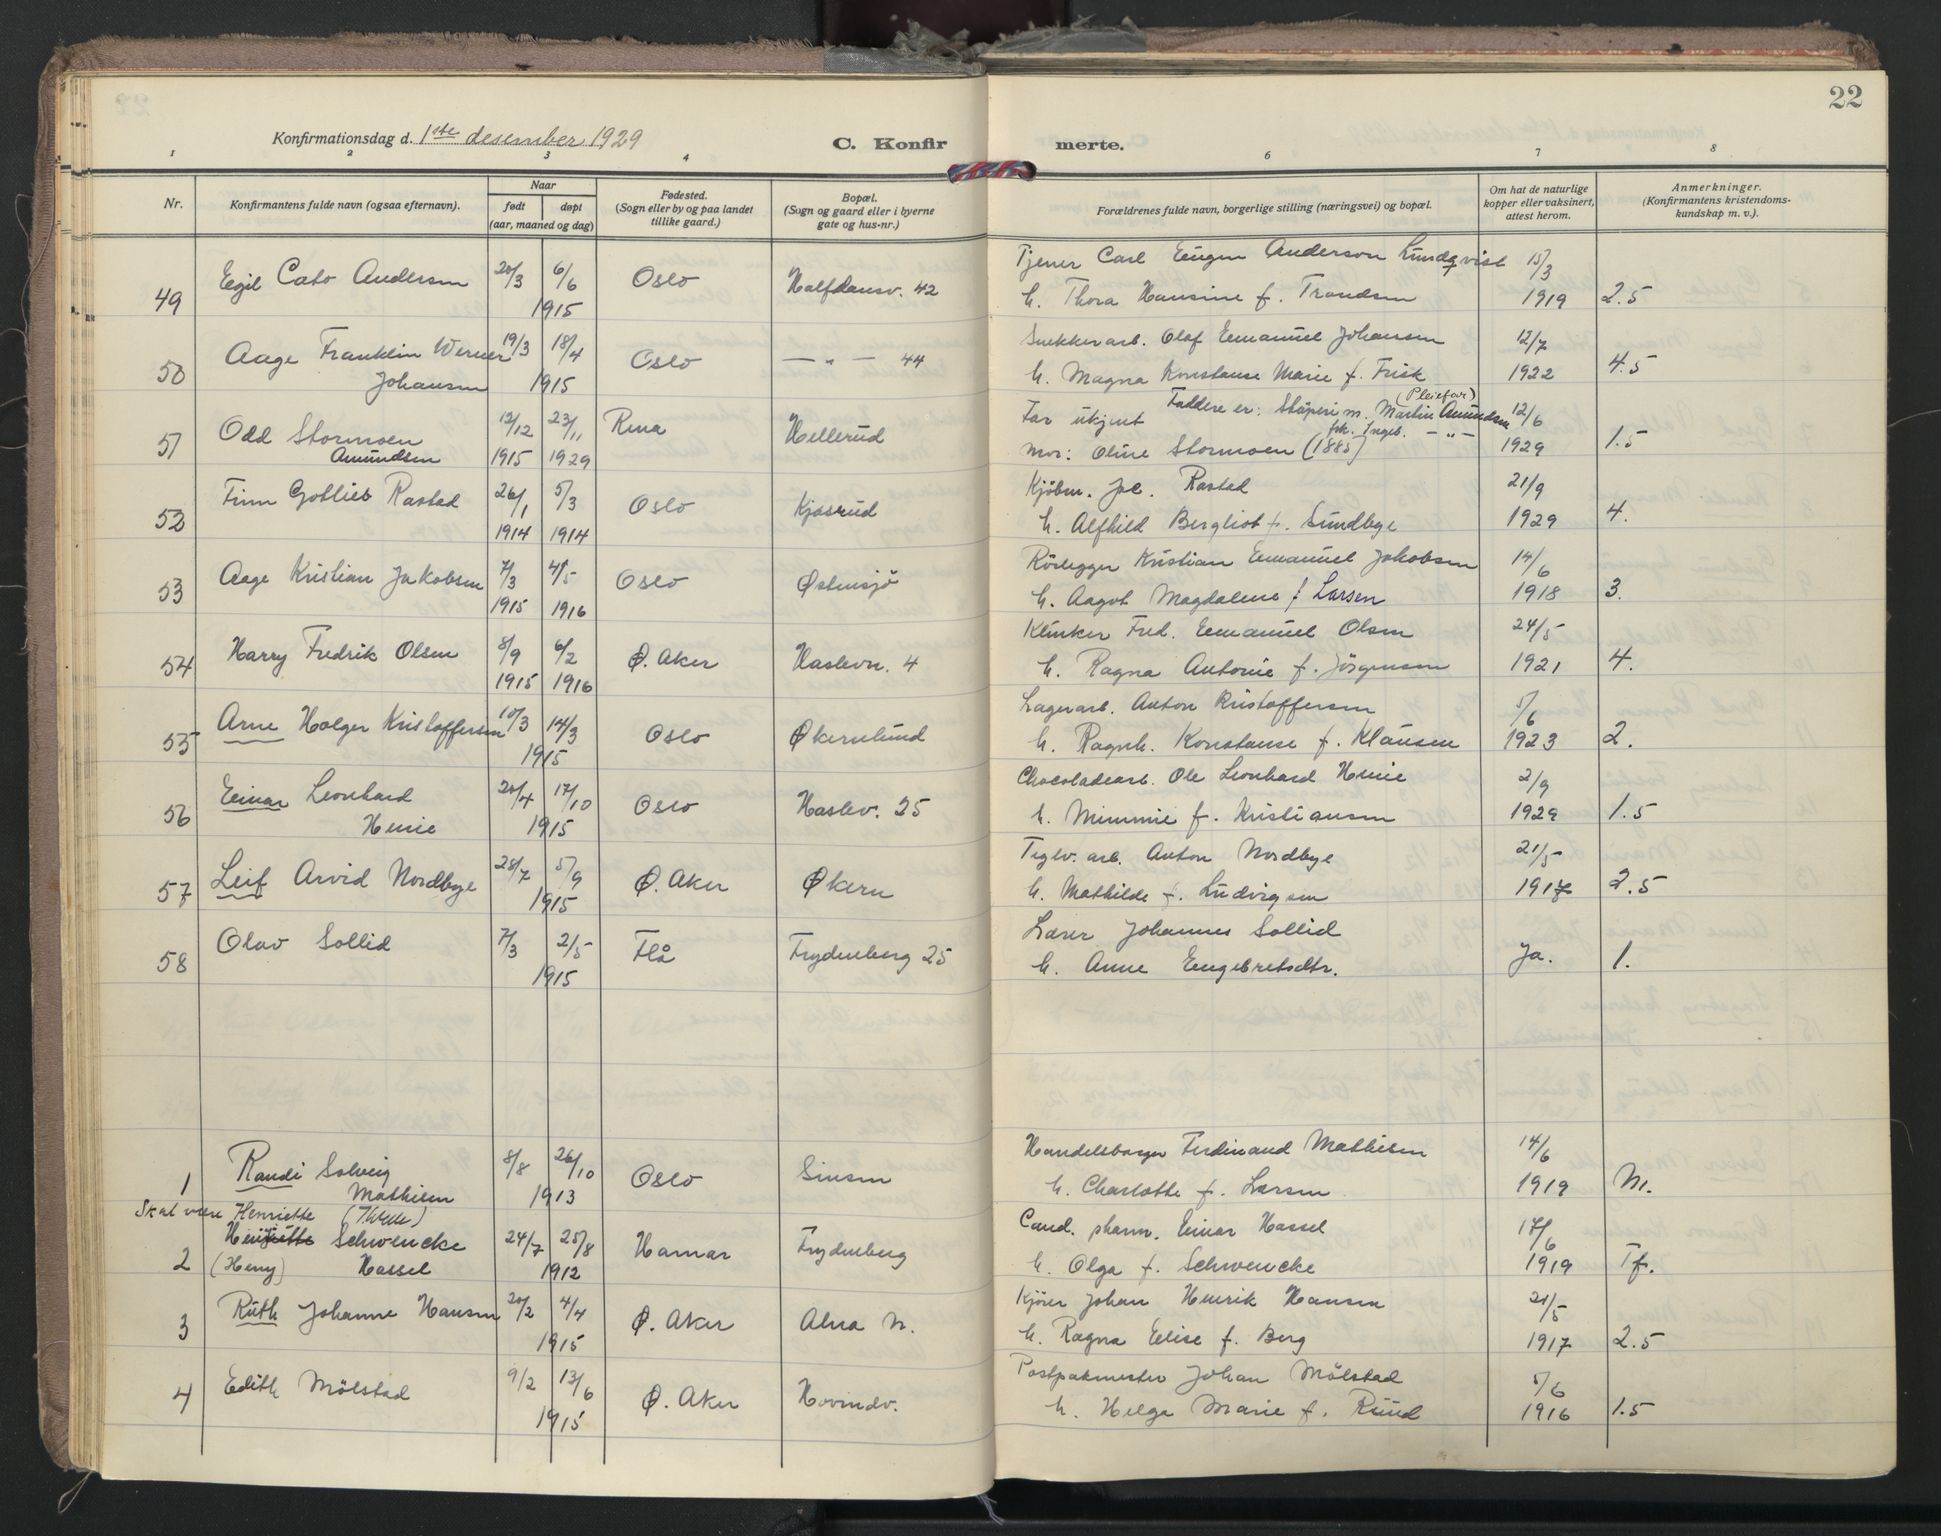 22
Konfirmationsdag d. 1ste desember 1929
C. Konfirmerte.
1 2 3 4 6 7 8
Nr.
Konfirmantens fulde navn (ogsaa efternavn).
Naar
født
døpt
(aar, maaned og dag)
Fødested.
(Sogn eller by og paa landet
tillike gaard.)
Bopæl.
(Sogn og gaard eller i byerne
gate og hus-nr.)
Forældrenes fulde navn, borgerlige stilling (næringsvei) og bopæl.
Om hat de naturlige
kopper eller vaksinert,
attest herom.
Anmerkninger.
(Konfirmantens kristendoms-
kundskap m. v.).
Tjener Carl Eugen Anderson Lundqvist 15/3
49 Egil Cato Andersen 20/3 6/6 Oslo Halfdansv. 42
1915 h. Thora Hansine f. Trondsen 1919 2.5
Snekkerarb. Olaf Emanuel Johansen 12/7
50 Aage Franklin Werner 19/3 18/4 Oslo — " — 44
Johansen 1915 h. Magna Konstanse Marie f. Frisk 1922 4.5
(Pleiefar)
Far ukjent Faddere er: Støperim. Martin Amundsen 12/6
51 Odd Stormoen 12/12 23/11 Rena Hellerud
frk. Ingeb. — " —
Amundsen 1915 1929 Mor: Oline Stormoen (1885) 1929 1.5
52 Finn Gotlieb Rastad 26/1 5/3 Oslo Kjøsrud Kjøbm. Rastad 21/9
1914 1914 h. Alfhild Bergliot f. Sundbye 1929 4.
53 Aage Kristian Jakobsen 7/3 4/5 Oslo Østensjö Rörlegger Kristian Emanuel Jakobsen 14/6
1915 1916 h. Aagot Magdalene f Larsen 1918 3.
54 Harry Fredrik Olsen 8/9 6/2 Ø. Aker Haslevn. 4 Klinker Fred. Emanuel Olsen 24/5
1915 1916 h. Ragna Antonie f. Jörgensen 1921 4.
55 Arne Holger Kristoffersen 10/3 14/3 Oslo Økernlund Lagerarb. Anton Kristoffersen 5/6
1915 h. Ragnh. Konstanse f. Klausen 1923 2.
56 Einar Leonhard 20/4 17/10 Oslo Haslev. 25 Chocoladearb. Ole Leonhard Henie 2/9
Henie 1915 h. Mimmie f. Kristiansen 1929 1.5
57 Leif Arvid Nordbye 28/7 5/9 Ø. Aker Økern Teglv. arb. Anton Nordbye 21/5
1915 h. Mathilde f. Ludvigsen 1917 2.5
58 Olav Sollid 7/3 2/5 Flå Frydenberg 25 Lærer Johannes Sollid
1915 h. Anne Engebretsdtr. Ja. 1.
1 Randi Solveig 8/8 26/10 Oslo Sinsen Handelsborger Ferdinand Mathisen 14/6
Mathisen 1913 h. Charlotte f. Larsen 1919 M.
Skal være Henriette
2 Schwencke 24/7 25/8 Hamar Frydenberg Cand. pharm. Einar Hassel 17/6
(Heny) Hassel 1912 h. Olga f. Schwencke 1919 Tf.
3 Ruth Johanne Hansen 20/2 4/4 Ø. Aker Alna N. Kjører Johan Henrik Hansen 21/5
1915 h. Ragna Elise f. Berg 1917 2.5
4 Edith Mölstad 9/2 13/6 Ø. Aker Hovindv. Postpakmester Johan Mölstad 5/6
1915 h. Helga Marie f. Ruud 1916 1.5